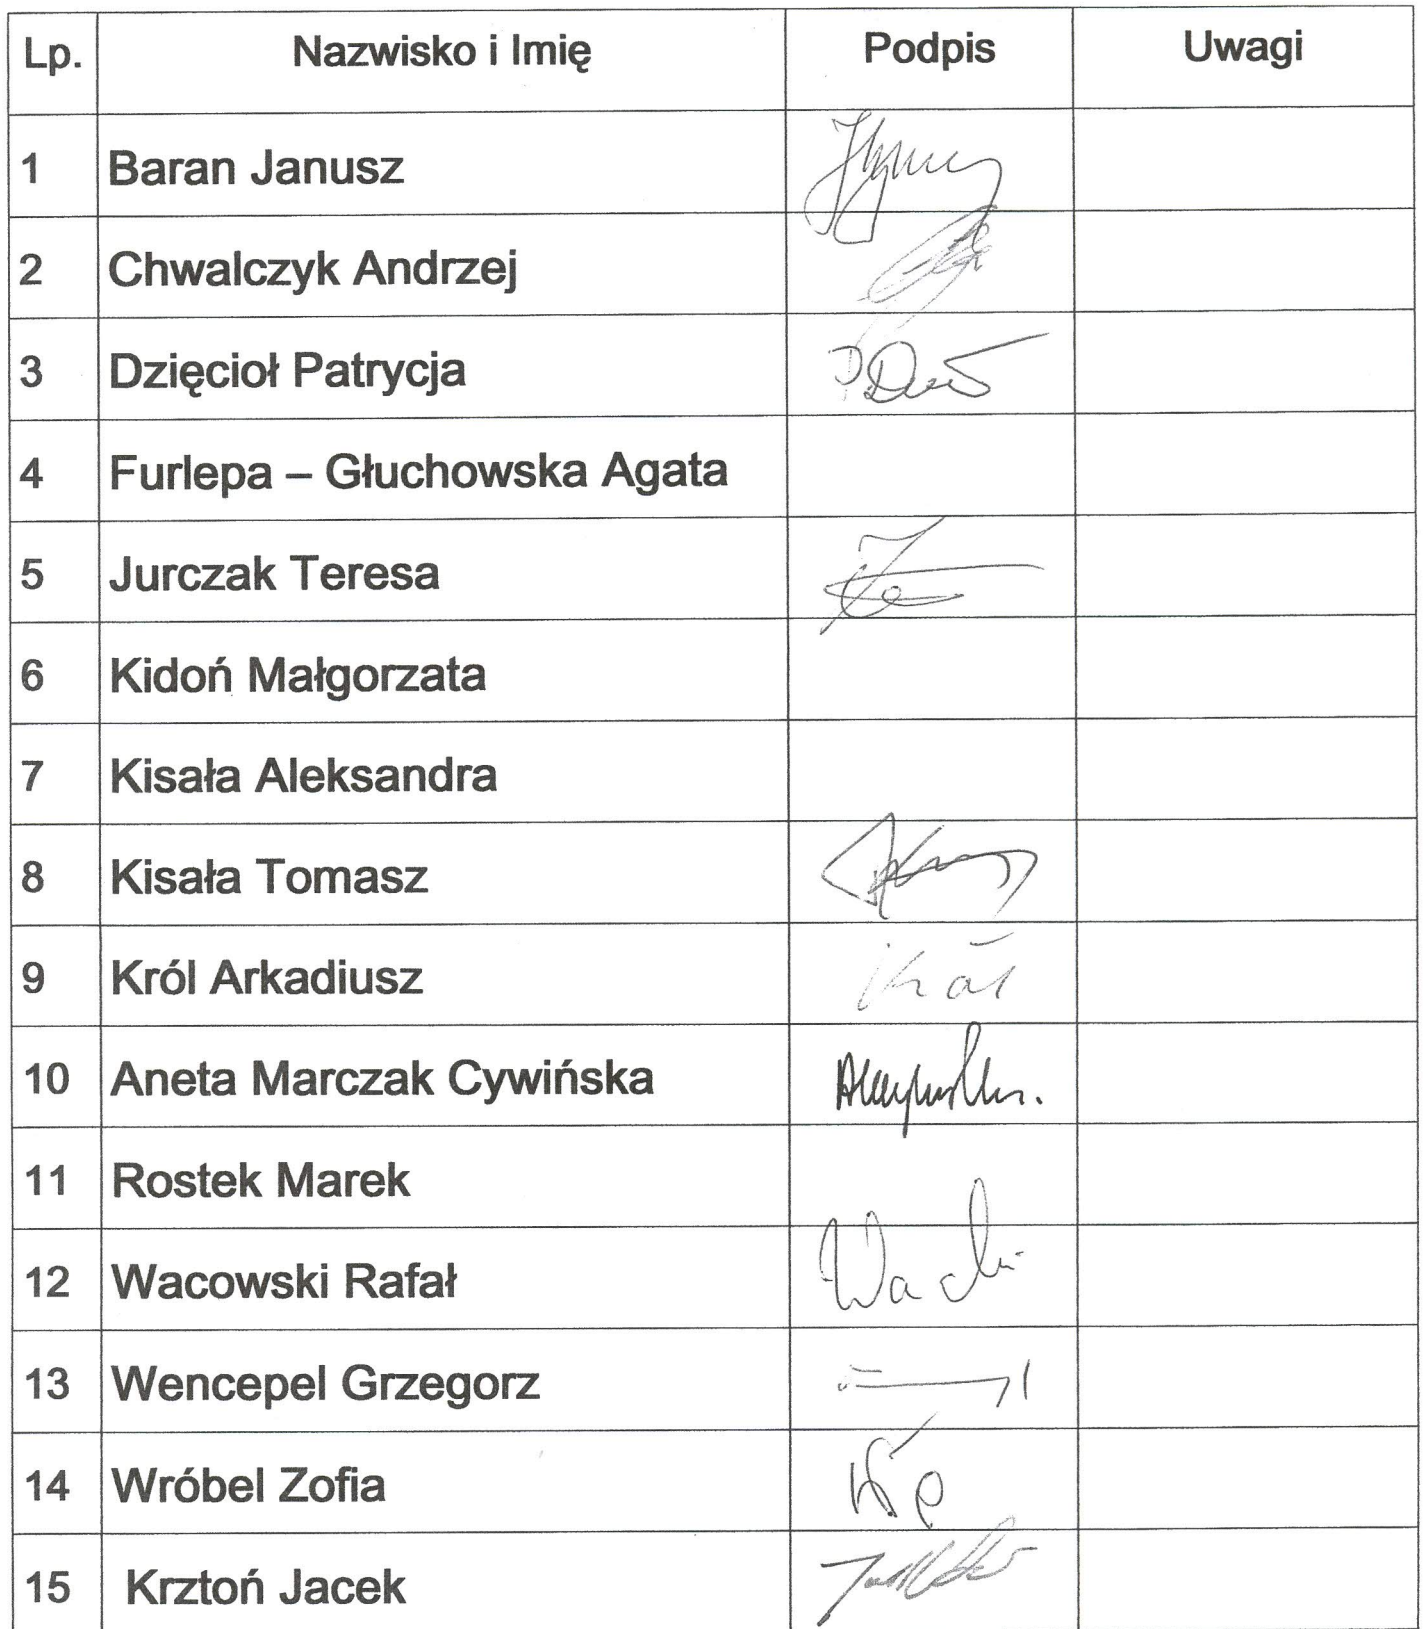 Lp. Nazwisko i Imię Podpis Uwagi
1 Baran Janusz
2 Chwalczyk Andrzej
3 Dzięcioł Patrycja
4 Furlepa – Głuchowska Agata
5 Jurczak Teresa
6 Kidoń Małgorzata
7 Kisała Aleksandra
8 Kisała Tomasz
9 Król Arkadiusz
10 Aneta Marczak Cywińska
11 Rostek Marek
12 Wacowski Rafał
13 Wencepel Grzegorz
14 Wróbel Zofia
15 Krztoń Jacek